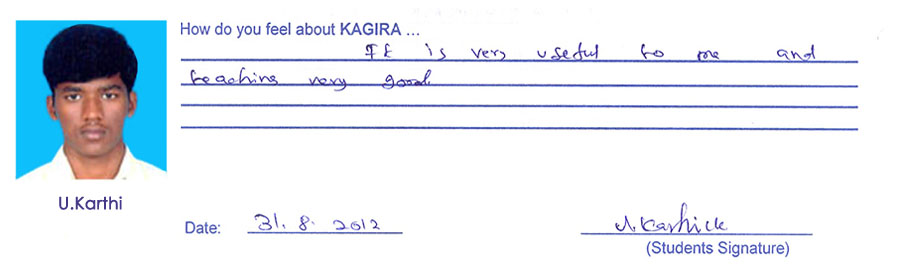 How do you feel about KAGIRA ...
It is very useful to me and
teaching very good
U.Karthi
Date: 31. 8. 2012
U.Karthick
(Students Signature)